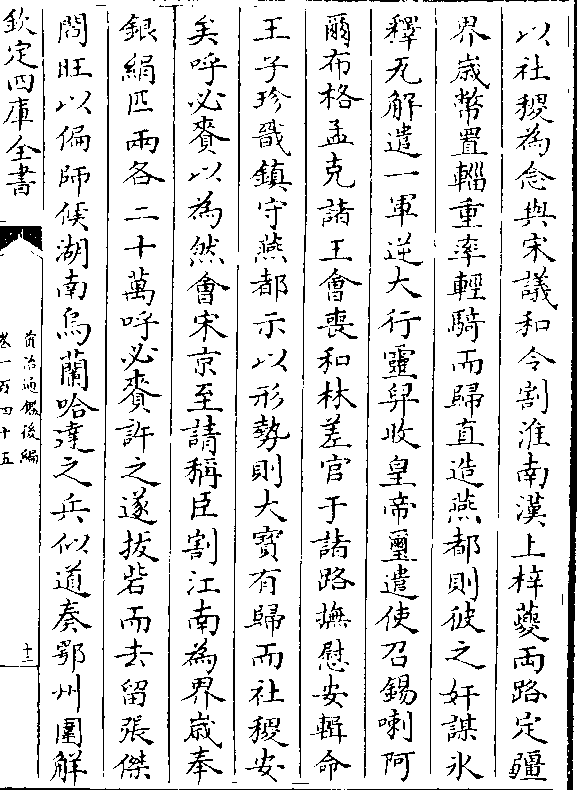 以社稷為念與宋議和令割淮南漢上梓夔兩路定疆
界歳幣置輜重率輕騎而歸直造燕都則彼之奸謀氷
釋瓦解遣一軍逆大行靈舁收皇帝璽遣使召錫喇阿
爾布格孟克諸王會喪和林差官于諸路撫慰安輯命
王子珍戩鎮守燕都示以形勢則大寳有歸而社稷安
矣呼必賚以為然會宋京至請稱臣割江南為界歳奉
銀絹匹兩各二十萬呼必賚許之遂拔砦而去留張傑
閻旺以偏師候湖南烏蘭哈達之兵似道奏鄂州圍解
欽定四庫全書
資治通鑑後編
卷一百四十五
十三